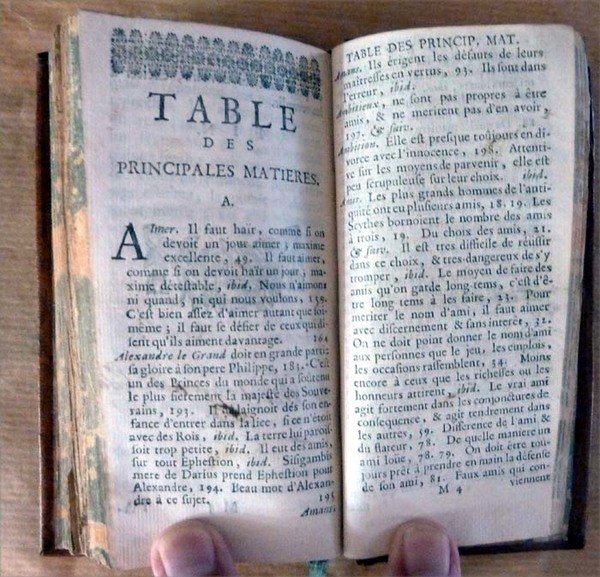 TABLE
DES
PRINCIPALES MATIERES.
A.
AImer. Il faut haïr, comme si on
devoit un jour aimer ; maxime
excellente, 49. Il faut aimer,
comme si on devoit haïr un jour ; ma-
xime détestable, ibid. Nous n'aimons
ni quand, ni qui nous voulons, 159.
C'est bien assez d'aimer autant que soi-
même ; il faut se défier de ceux qui di-
sent qu'ils aiment davantage. 164
Alexandre le Grand doit en grande partie
sa gloire à son pere Philippe, 183. C'est
un des Princes du monde qui a soûtenu
le plus fierement la majesté des Souve-
rains, 193. Il se plaignoit dès son en-
fance d'entrer dans la lice, si ce n'étoit
avec des Rois, ibid. La terre lui parois-
soit trop petite, ibid. Il eut des amis,
sur tout Ephestion, ibid. Sisigambis
mere de Darius prend Ephestion pour
Alexandre, 194. Beau mot d'Alexan-
dre à ce sujet. 195
Amans.
TABLE DES PRINCIP. MAT.
Amans. Ils érigent les défauts de leurs
maîtresses en vertus, 93. Ils sont dans
l'erreur, ibid.
Ambitieux, ne sont pas propres à être
amis, & ne meritent pas d'en avoir,
197. & suiv.
Ambition. Elle est presque toûjours en di-
vorce avec l'innocence, 198. Attenti-
ve sur les moyens de parvenir, elle est
peu scrupuleuse sur leur choix. ibid.
Amer. Les plus grands hommes de l'anti-
quité ont eu plusieurs amis, 18. 19. Les
Scythes bornoient le nombre des amis
à trois, 19. Du choix des amis, 21.
& suiv. Il est tres difficile de réüssir
dans ce choix, & tres-dangereux de s'y
tromper, ibid. Le moyen de faire des
amis qu'on garde long-tems, c'est d'ê-
tre long-tems à les faire, 23. Pour
meriter le nom d'ami, il faut aimer
avec discernement & sans interêt, 32.
On ne doit point donner le nom d'ami
aux personnes que le jeu, les emplois,
les occasions rassemblent, 54. Moins
encore à ceux que les richesses ou les
honneurs attirent, ibid. Le vrai ami
agit fortement dans les conjonctures de
consequence, & agit tendrement dans
les autres, 59. Difference de l'ami &
du flateur, 78. De quelle maniere un
ami loüe, 78. 79. On doit être toû-
jours prêt à prendre en main la défense
de son ami, 81. Faux amis qui con-
M 4 viennent